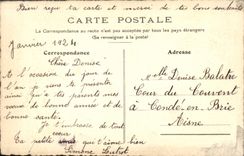 Bien reçu ta carte et merci de tes bons souhaits
CARTE POSTALE
La Correspondance au recto n'est pas acceptée par tous les pays étrangers
(Se renseigner à la poste)
Janvier 1924
Correspondance
Adresse
Chère Denise
Mlle Denise Balatre
A l'occasion du jour de
Cour du Couvent
l'an je vous présente
à Condé-en-Brie
ainsi qu'à tes parents mes
Aisne
vœux de bonne année et de
bonne santé.
Je t'embrasse de tout
cœur
Ta petite amie qui t'aime bien
Simone